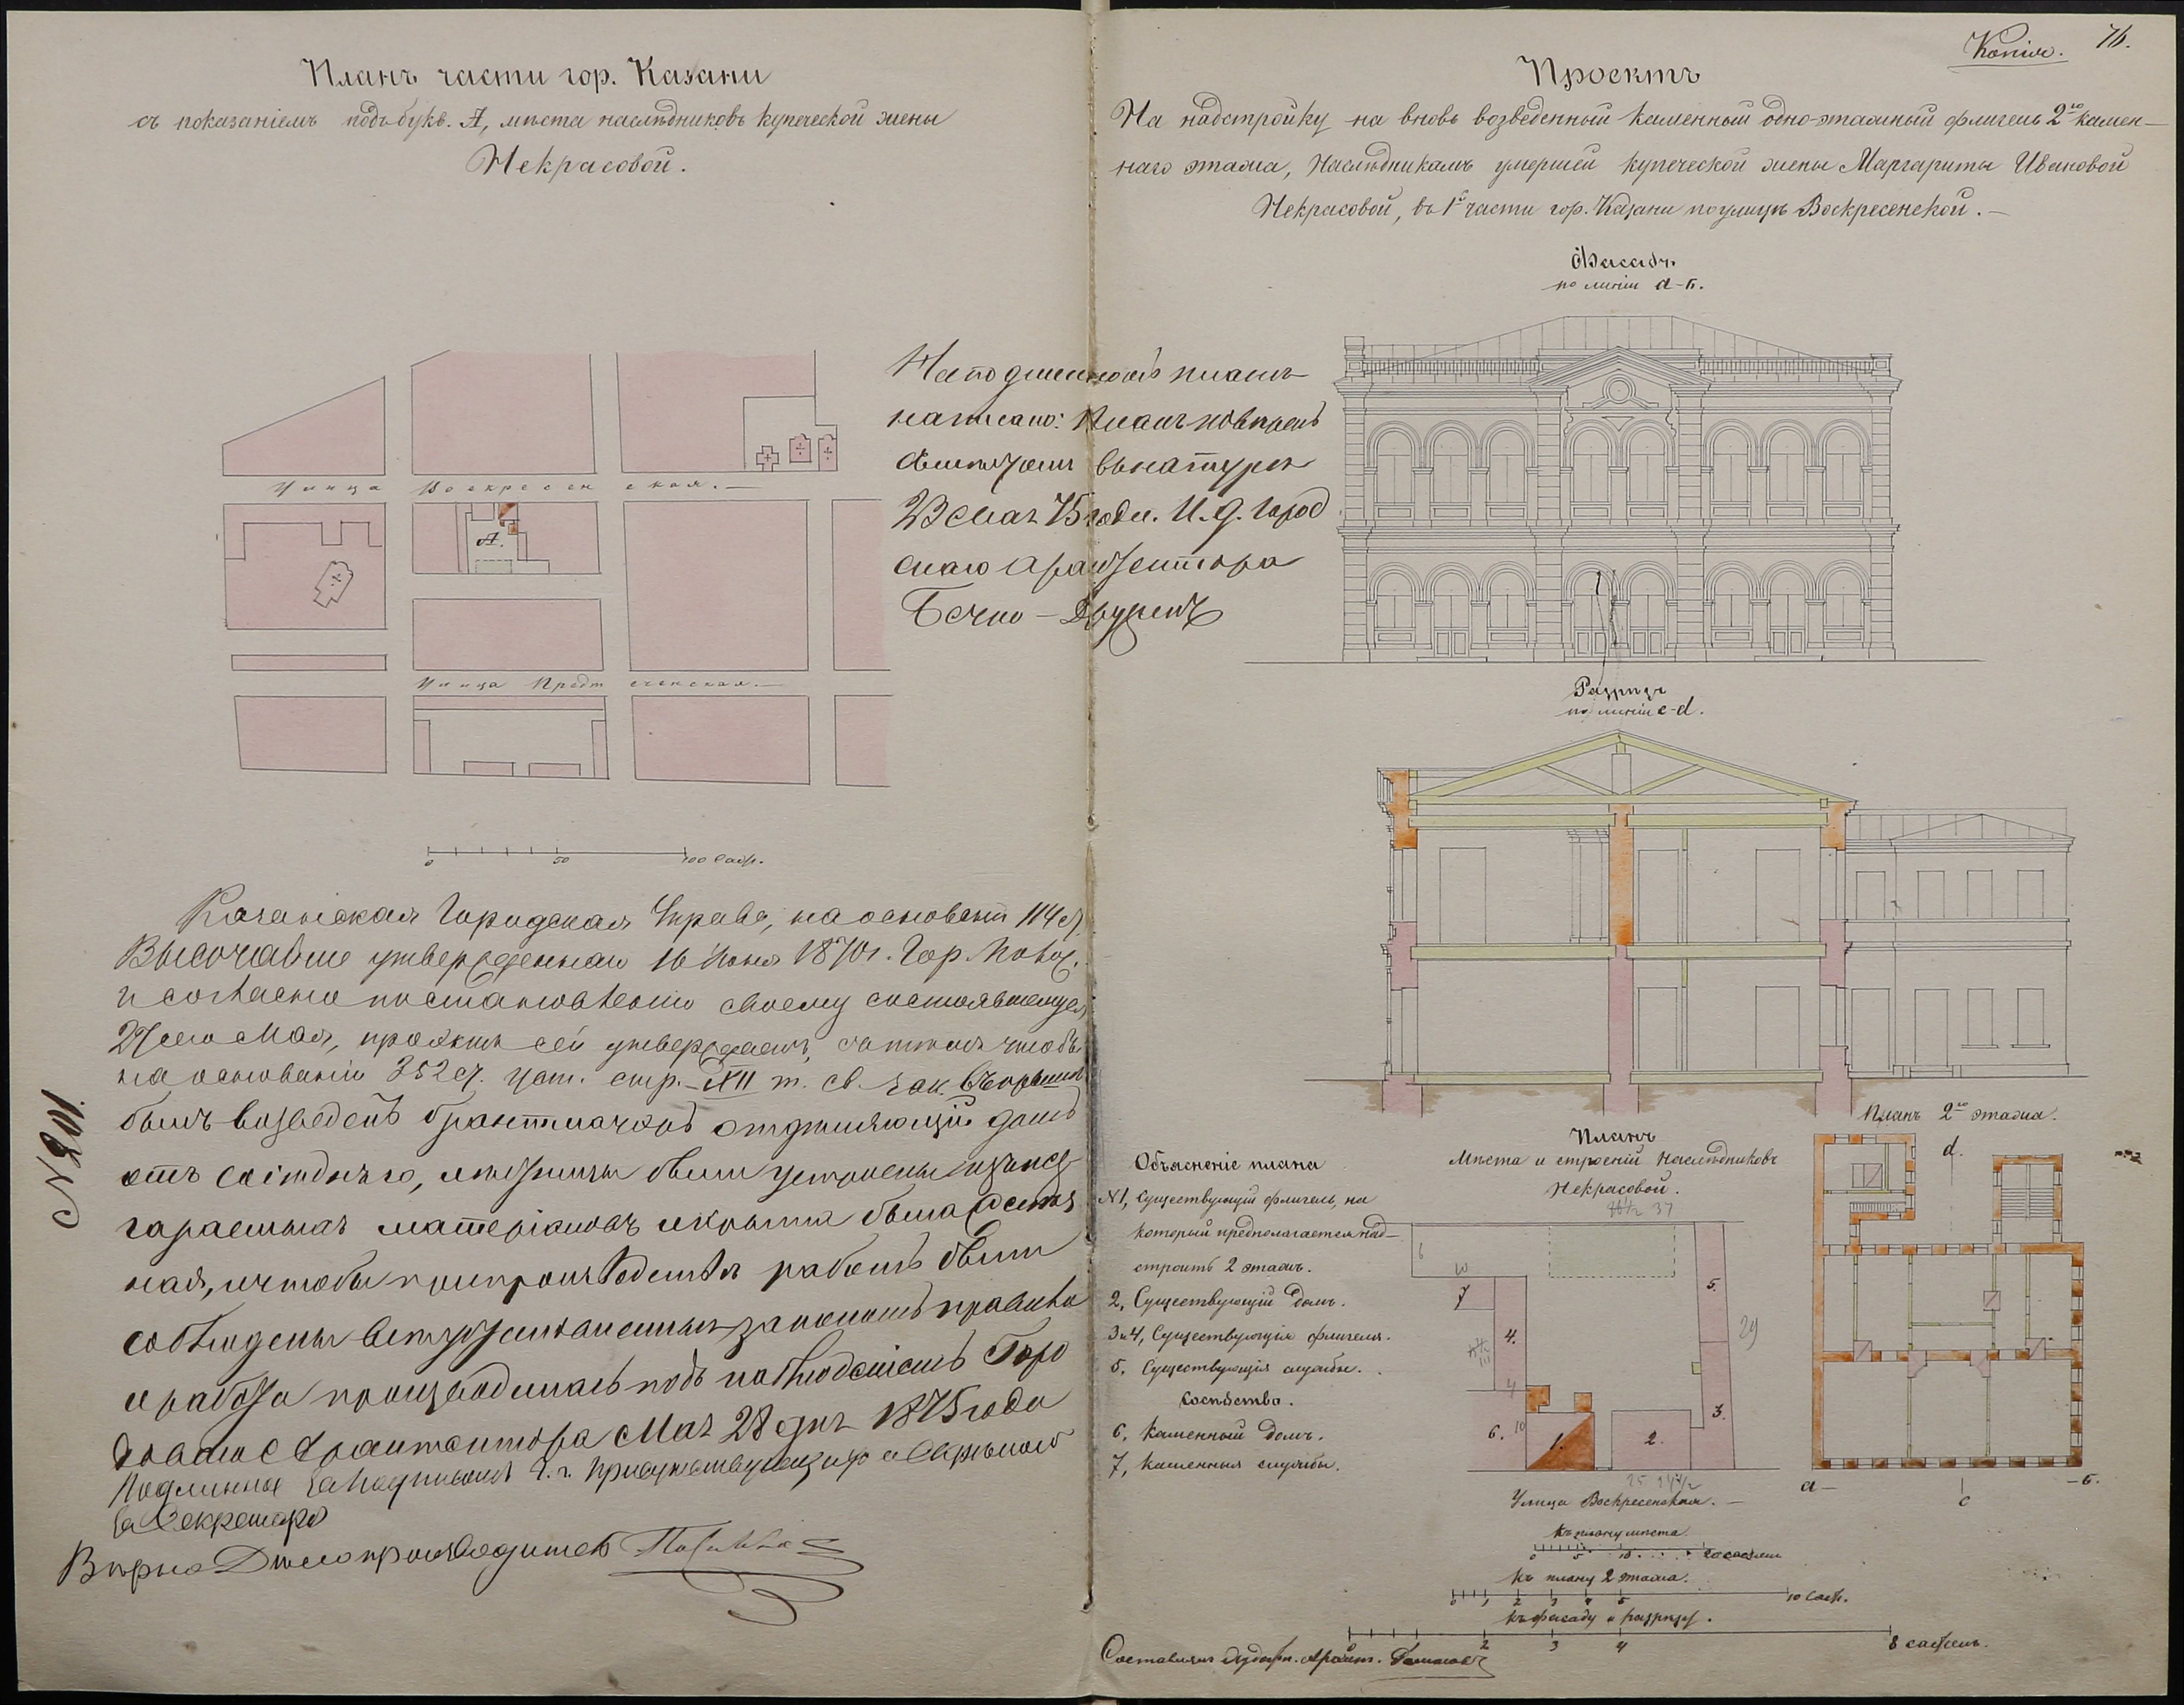 Планъ части гор. Казани
съ показаніемъ подъ букв. А, мѣста наслѣдниковъ купеческой жены
Некрасовой.
Улица Воскресенская.
А.
Улица Предтеченская.
0 50 100 Саж.
На подлинномъ планѣ
написано: Планъ повѣренъ
въ натурѣ
23 Мая 75 года. И. д. Город
скаго Архитектора
Казанская Городская Управа, на основаніи 114 ст.
Высочайше утвержденнаго 16 Іюня 1870 г. Гор. Полож.
и согласно постановленію своему состоявшемуся
27 сего Мая, проэктъ сей утверждаетъ, съ тѣмъ чтобы
на основаніи 352 ст. уст. стр. XII т. св. зак.
былъ возведенъ брантмауеръ отдѣляющій домъ
отъ сосѣдняго, лѣстницы были устроены изъ несг
гараемыхъ матеріаловъ и крыта была
ная, и чтобы при производствѣ работъ были
соблюдены всѣ установленныя закономъ правила
и работа производилась подъ наблюденіемъ Горо
Архитектора Мая 28 дня 1875 года
Подлинное за подписомъ г. г. Присутствующихъ и скрѣпою
Секретаря
Вѣрно Дѣлопроизводитель
N 201.
Копія. 76.
Проектъ
На надстройку на вновь возведенный каменный одно-этажный флигель 2го камен-
наго этажа, Наслѣдникамъ умершей купеческой жены Маргариты Ивановой
Некрасовой, въ 1й части гор. Казани по улицѣ Воскресенской.
Фасадъ
по линіи а-б.
Разрѣзъ
по линіи c-d.
Объясненіе плана
N 1, Существующій флигель, на
который предполагается над-
строить 2 этажъ.
2, Существующій домъ.
3 и 4, Существующія флигеля.
5, Существующія службы.
Сосѣдство.
6, Каменный домъ.
7, каменныя службы.
Планъ
Мѣста и строеній Наслѣдниковъ
Некрасовой.
37
6
10
7
5.
4.
29
4
3.
6. 10
1.
2.
25
Улица Воскресенская.
Планъ 2го этажа.
d.
а б.
c
Къ плану мѣста
0 5 10
Къ плану 2 этажа.
0 1 2 3 4 5 10 Саж.
къ фасаду и разрѣзу.
0 2 3 4 8 сажень.
Составилъ Архит.